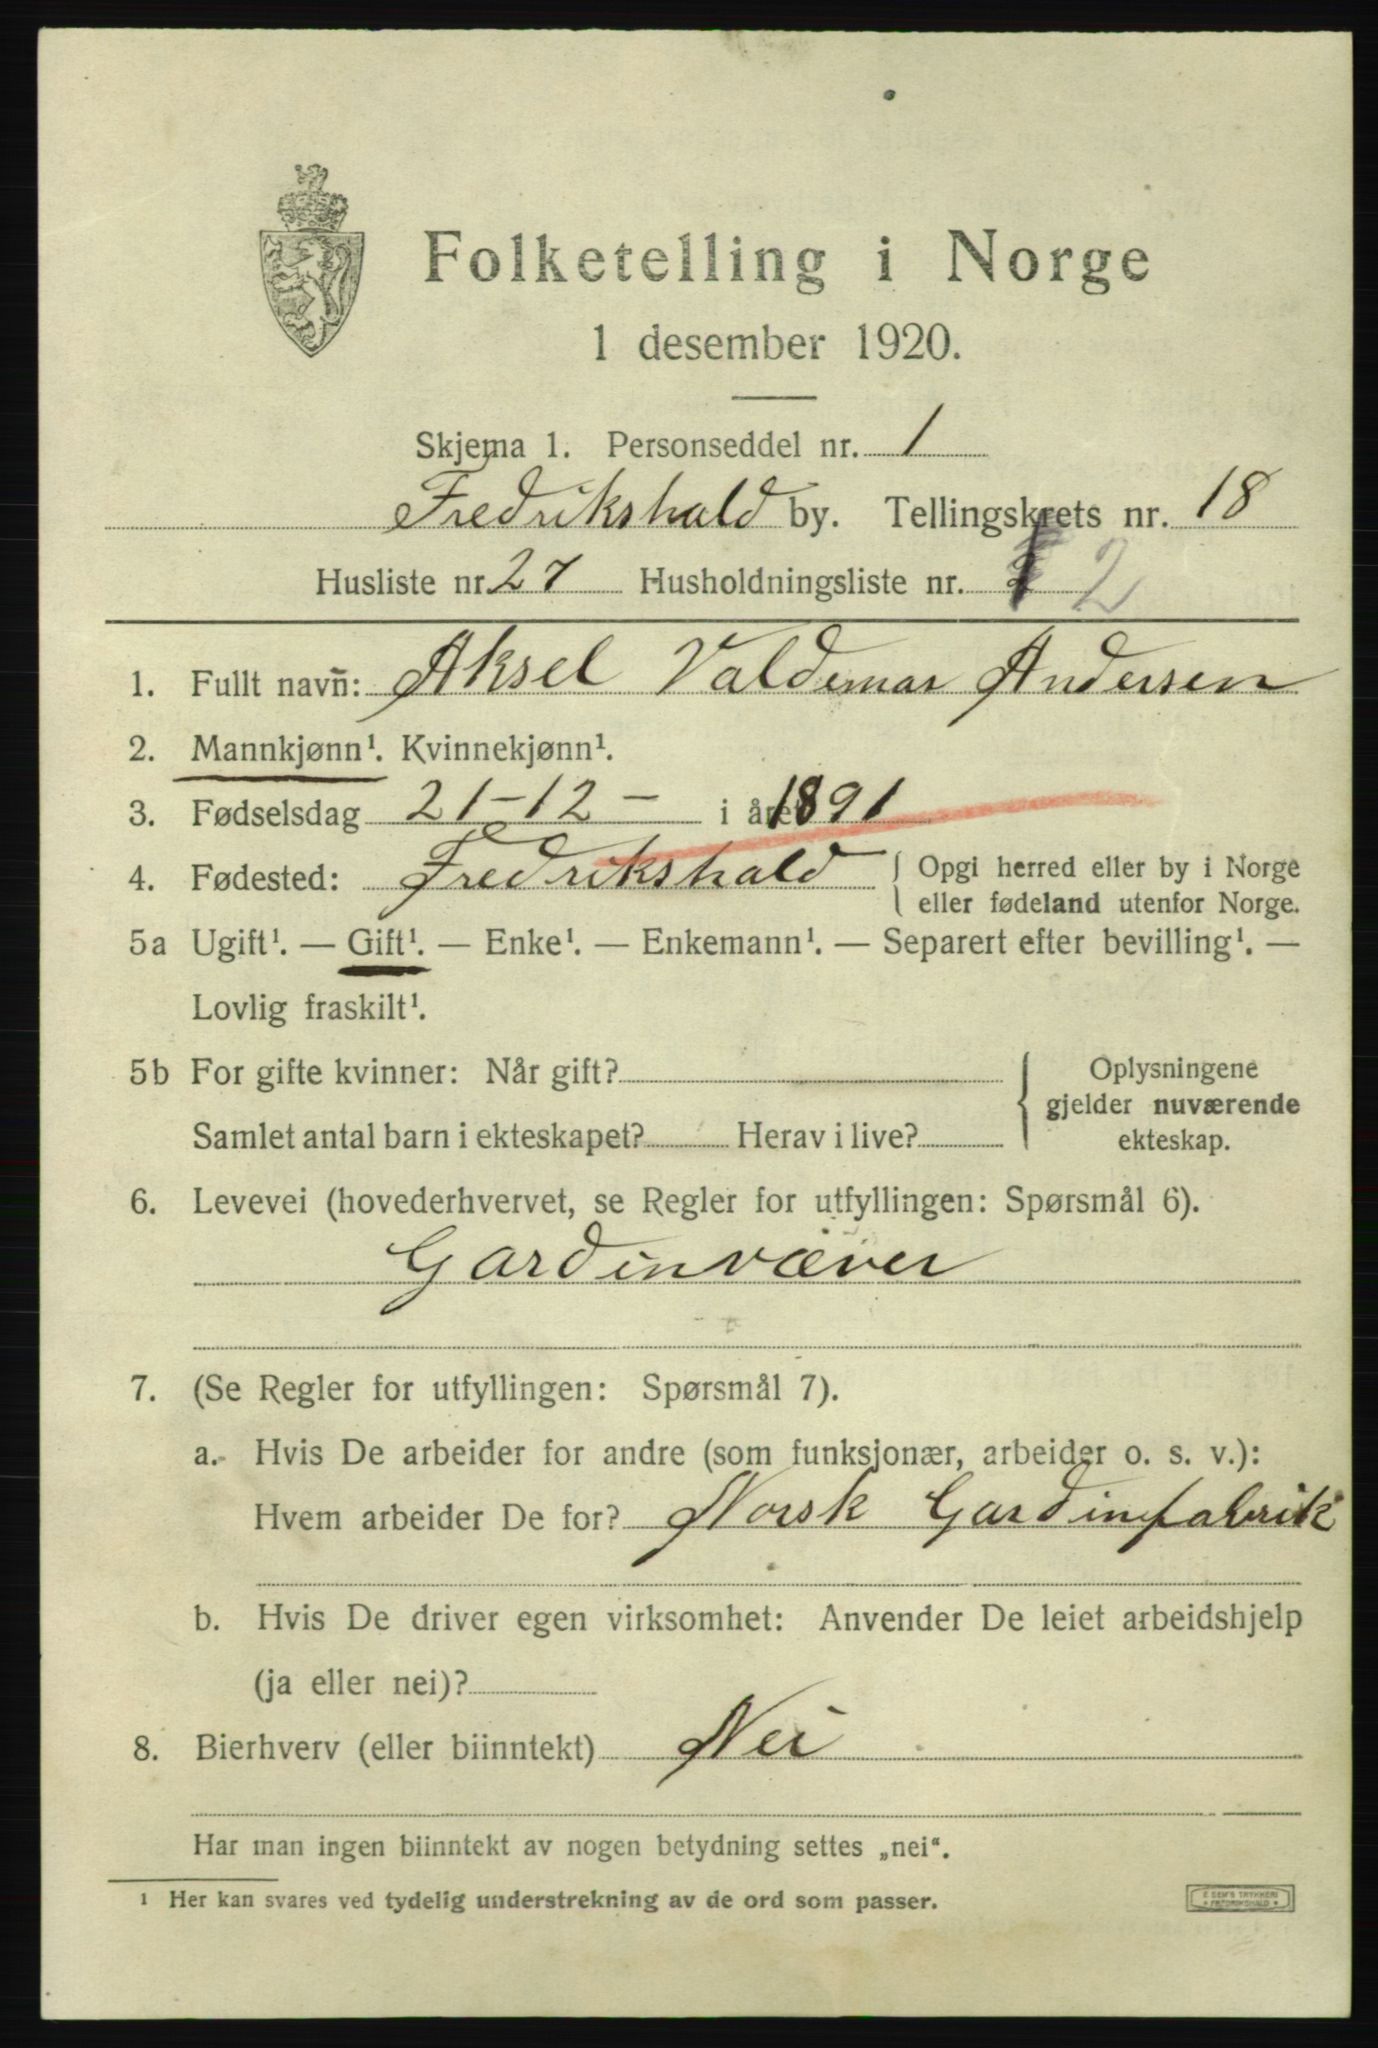 Folketelling i Norge
1 desember 1920.
Skjema 1. Personseddel nr. 1
Fredrikshald by. Tellingskrets nr. 18
Husliste nr. 27 Husholdningsliste nr. 2
1. Fullt navn: Aksel Valdemar Andersen
2. Mannkjønn¹. Kvinnekjønn¹.
3. Fødselsdag 21-12- i året 1891
4. Fødested: Fredrikshald { Opgi herred eller by i Norge
eller fødeland utenfor Norge.
5a Ugift¹. — Gift¹. — Enke¹. — Enkemann¹. — Separert efter bevilling¹. —
Lovlig fraskilt¹.
5b For gifte kvinner: Når gift? { Oplysningene
gjelder nuværende
Samlet antal barn i ekteskapet? Herav i live? ekteskap.
6. Levevei (hovederhvervet, se Regler for utfyllingen: Spørsmål 6).
Gardinvæver
7. (Se Regler for utfyllingen: Spørsmål 7).
a. Hvis De arbeider for andre (som funksjonær, arbeider o. s. v.):
Hvem arbeider De for? Norsk Gardinfabrik
b. Hvis De driver egen virksomhet: Anvender De leiet arbeidshjelp
(ja eller nei)?
8. Bierhverv (eller biinntekt) Nei
Har man ingen biinntekt av nogen betydning settes „nei“.
¹ Her kan svares ved tydelig understrekning av de ord som passer.
E SEM'S TRYKKERI
FREDRIKSHALD